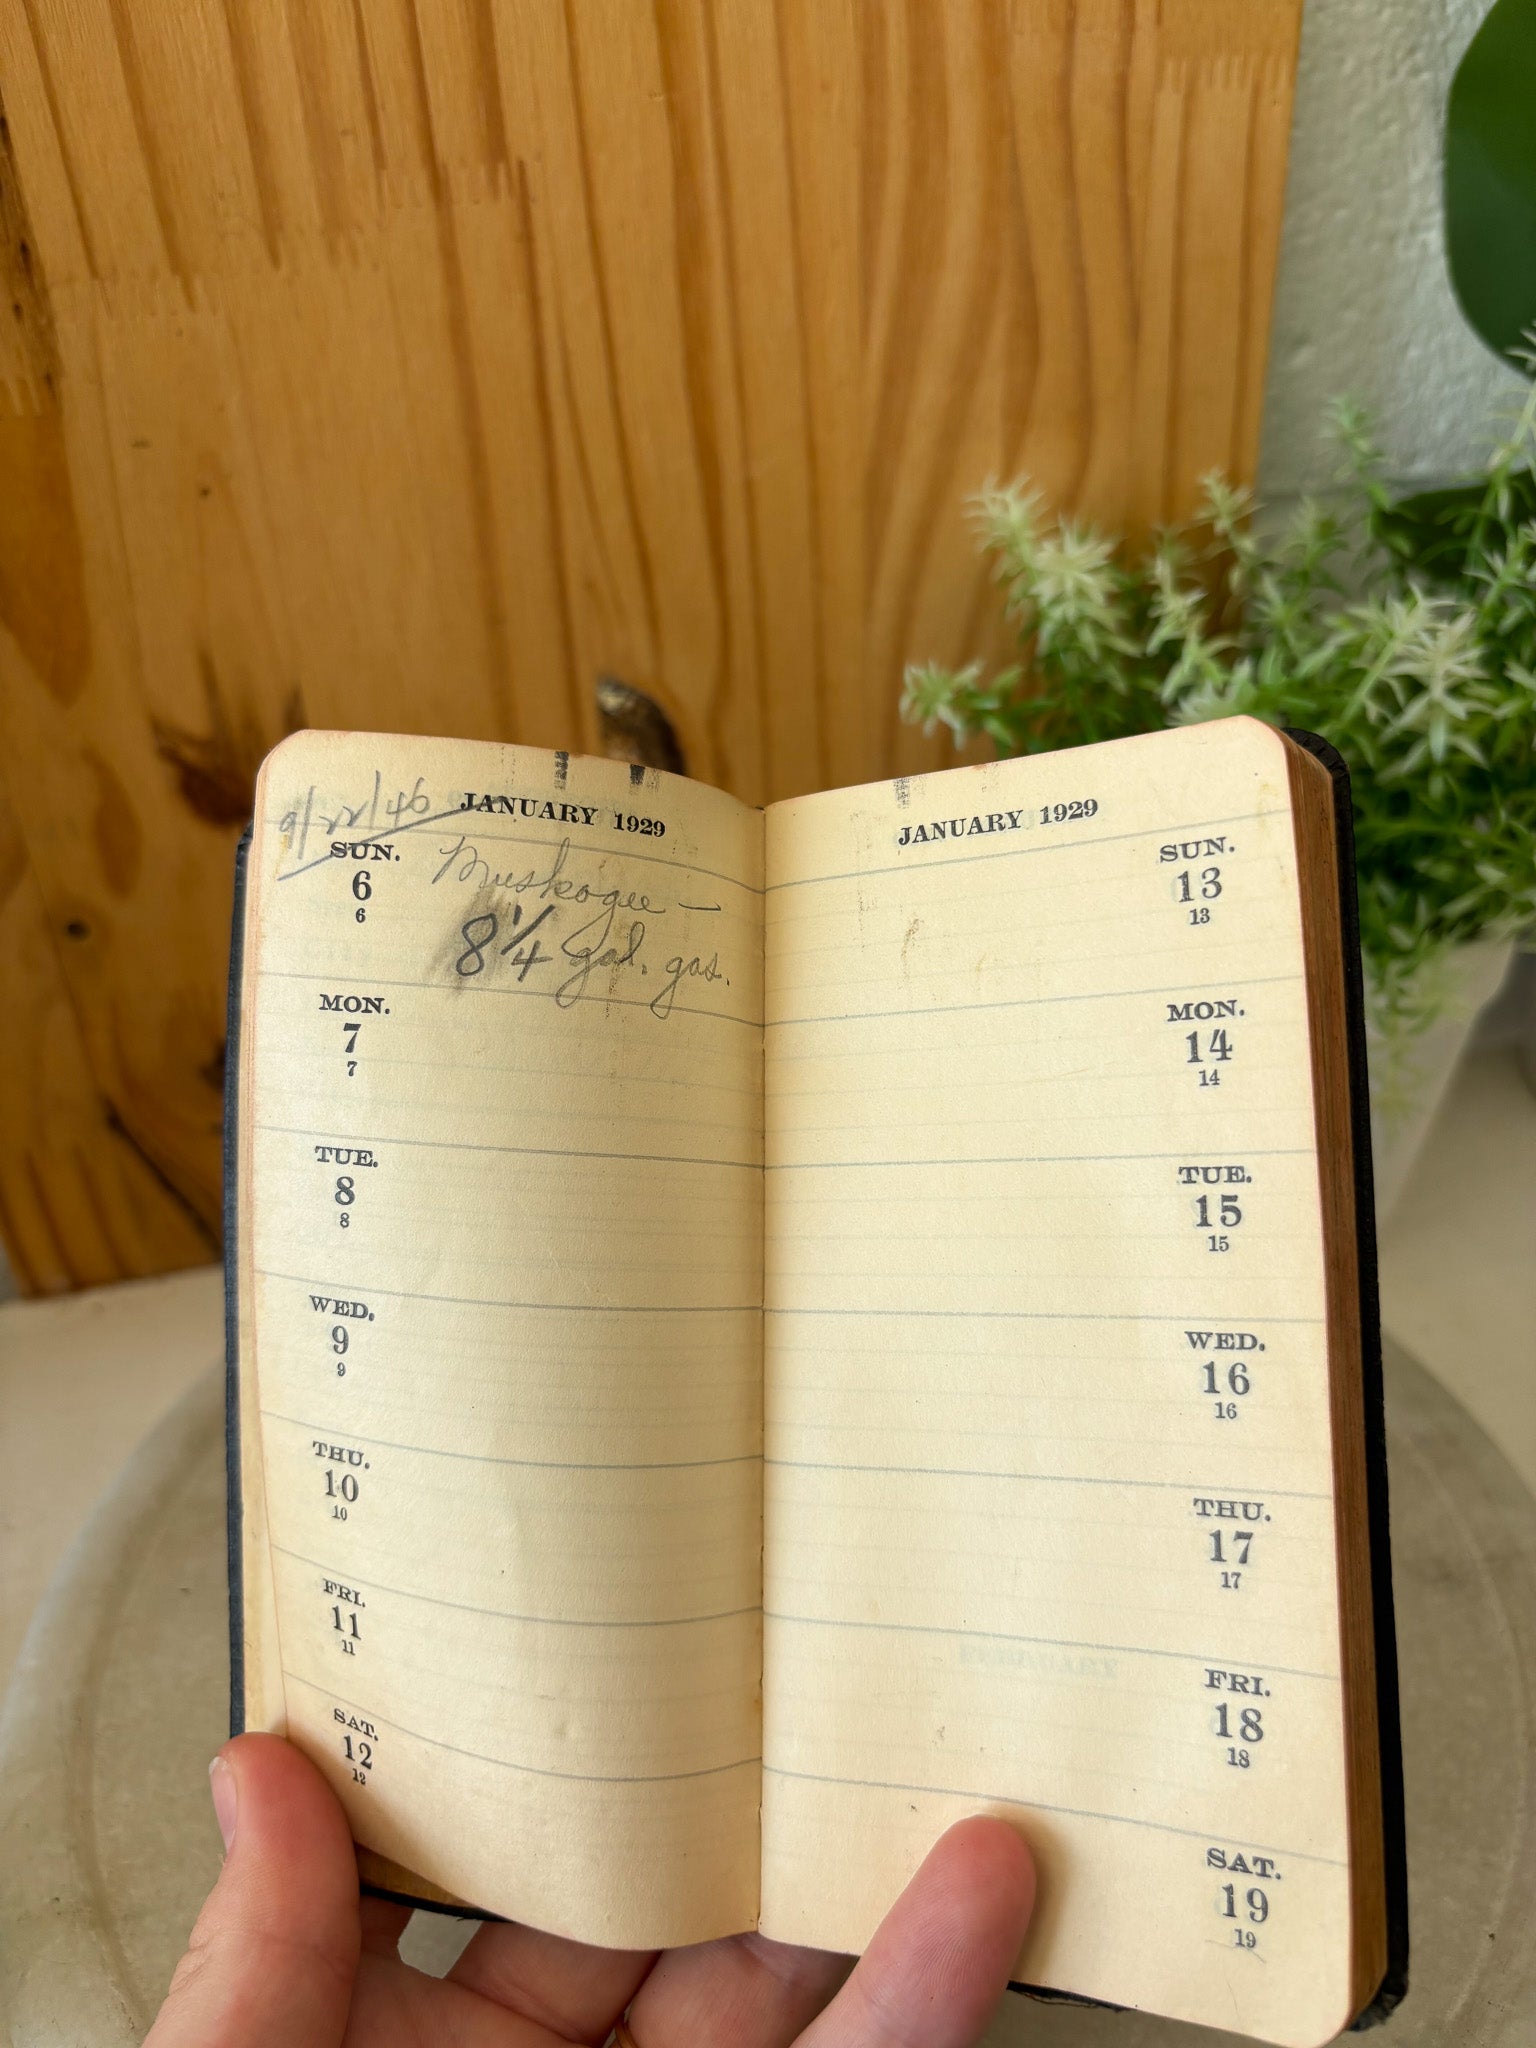 9/22/46
JANUARY 1929
SUN.
6
6
Muskogee —
8 1/4 gal. gas.
MON.
7
7
TUE.
8
8
WED.
9
9
THU.
10
10
FRI.
11
11
SAT.
12
12
JANUARY 1929
SUN.
13
13
MON.
14
14
TUE.
15
15
WED.
16
16
THU.
17
17
FRI.
18
18
SAT.
19
19